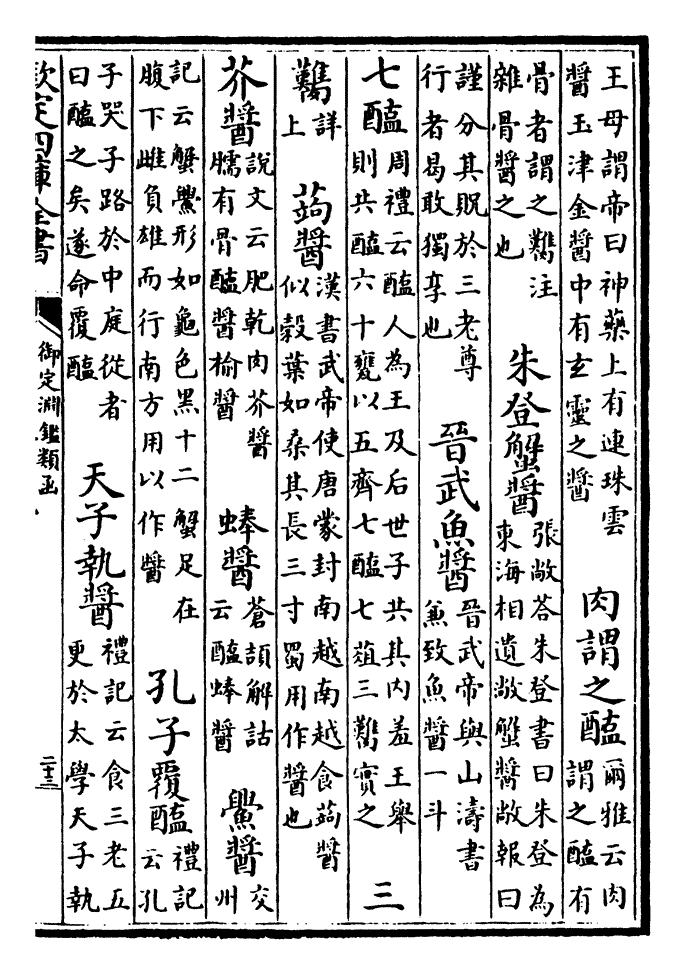 王母謂帝曰神藥上有連珠雲
醬玉津金醬中有玄靈之醬
肉謂之醢
爾雅云肉
謂之醢有
骨者謂之臡注
雜骨醬之也
朱登蟹醬
張敞荅朱登書曰朱登為
東海相遺敞蟹醬敞報曰
謹分其貺於三老尊
行者曷敢獨享也
晉武魚醬
晉武帝與山濤書
兼致魚醬一斗
七醢
周禮云醢人為王及后世子共其内羞王舉
則共醢六十甕以五齊七醢七葅三臡實之
三
臡
詳
上
蒟醬
漢書武帝使唐蒙封南越南越食蒟醬
似穀葉如桑其長三寸蜀用作醬也
芥醬
說文云肥乾肉芥醬
臑有骨醢醬榆醬
蜯醬
蒼頡解詁
云醢蜯醬
鱟醬
交
州
記云蟹鱟形如龜色黑十二蟹足在
腹下雌負雄而行南方用以作醬
孔子覆醢
禮記
云孔
子哭子路於中庭從者
曰醢之矣遂命覆醢
天子執醬
禮記云食三老五
更於太學天子執
欽定四庫全書
御定淵鑑類函
二十三